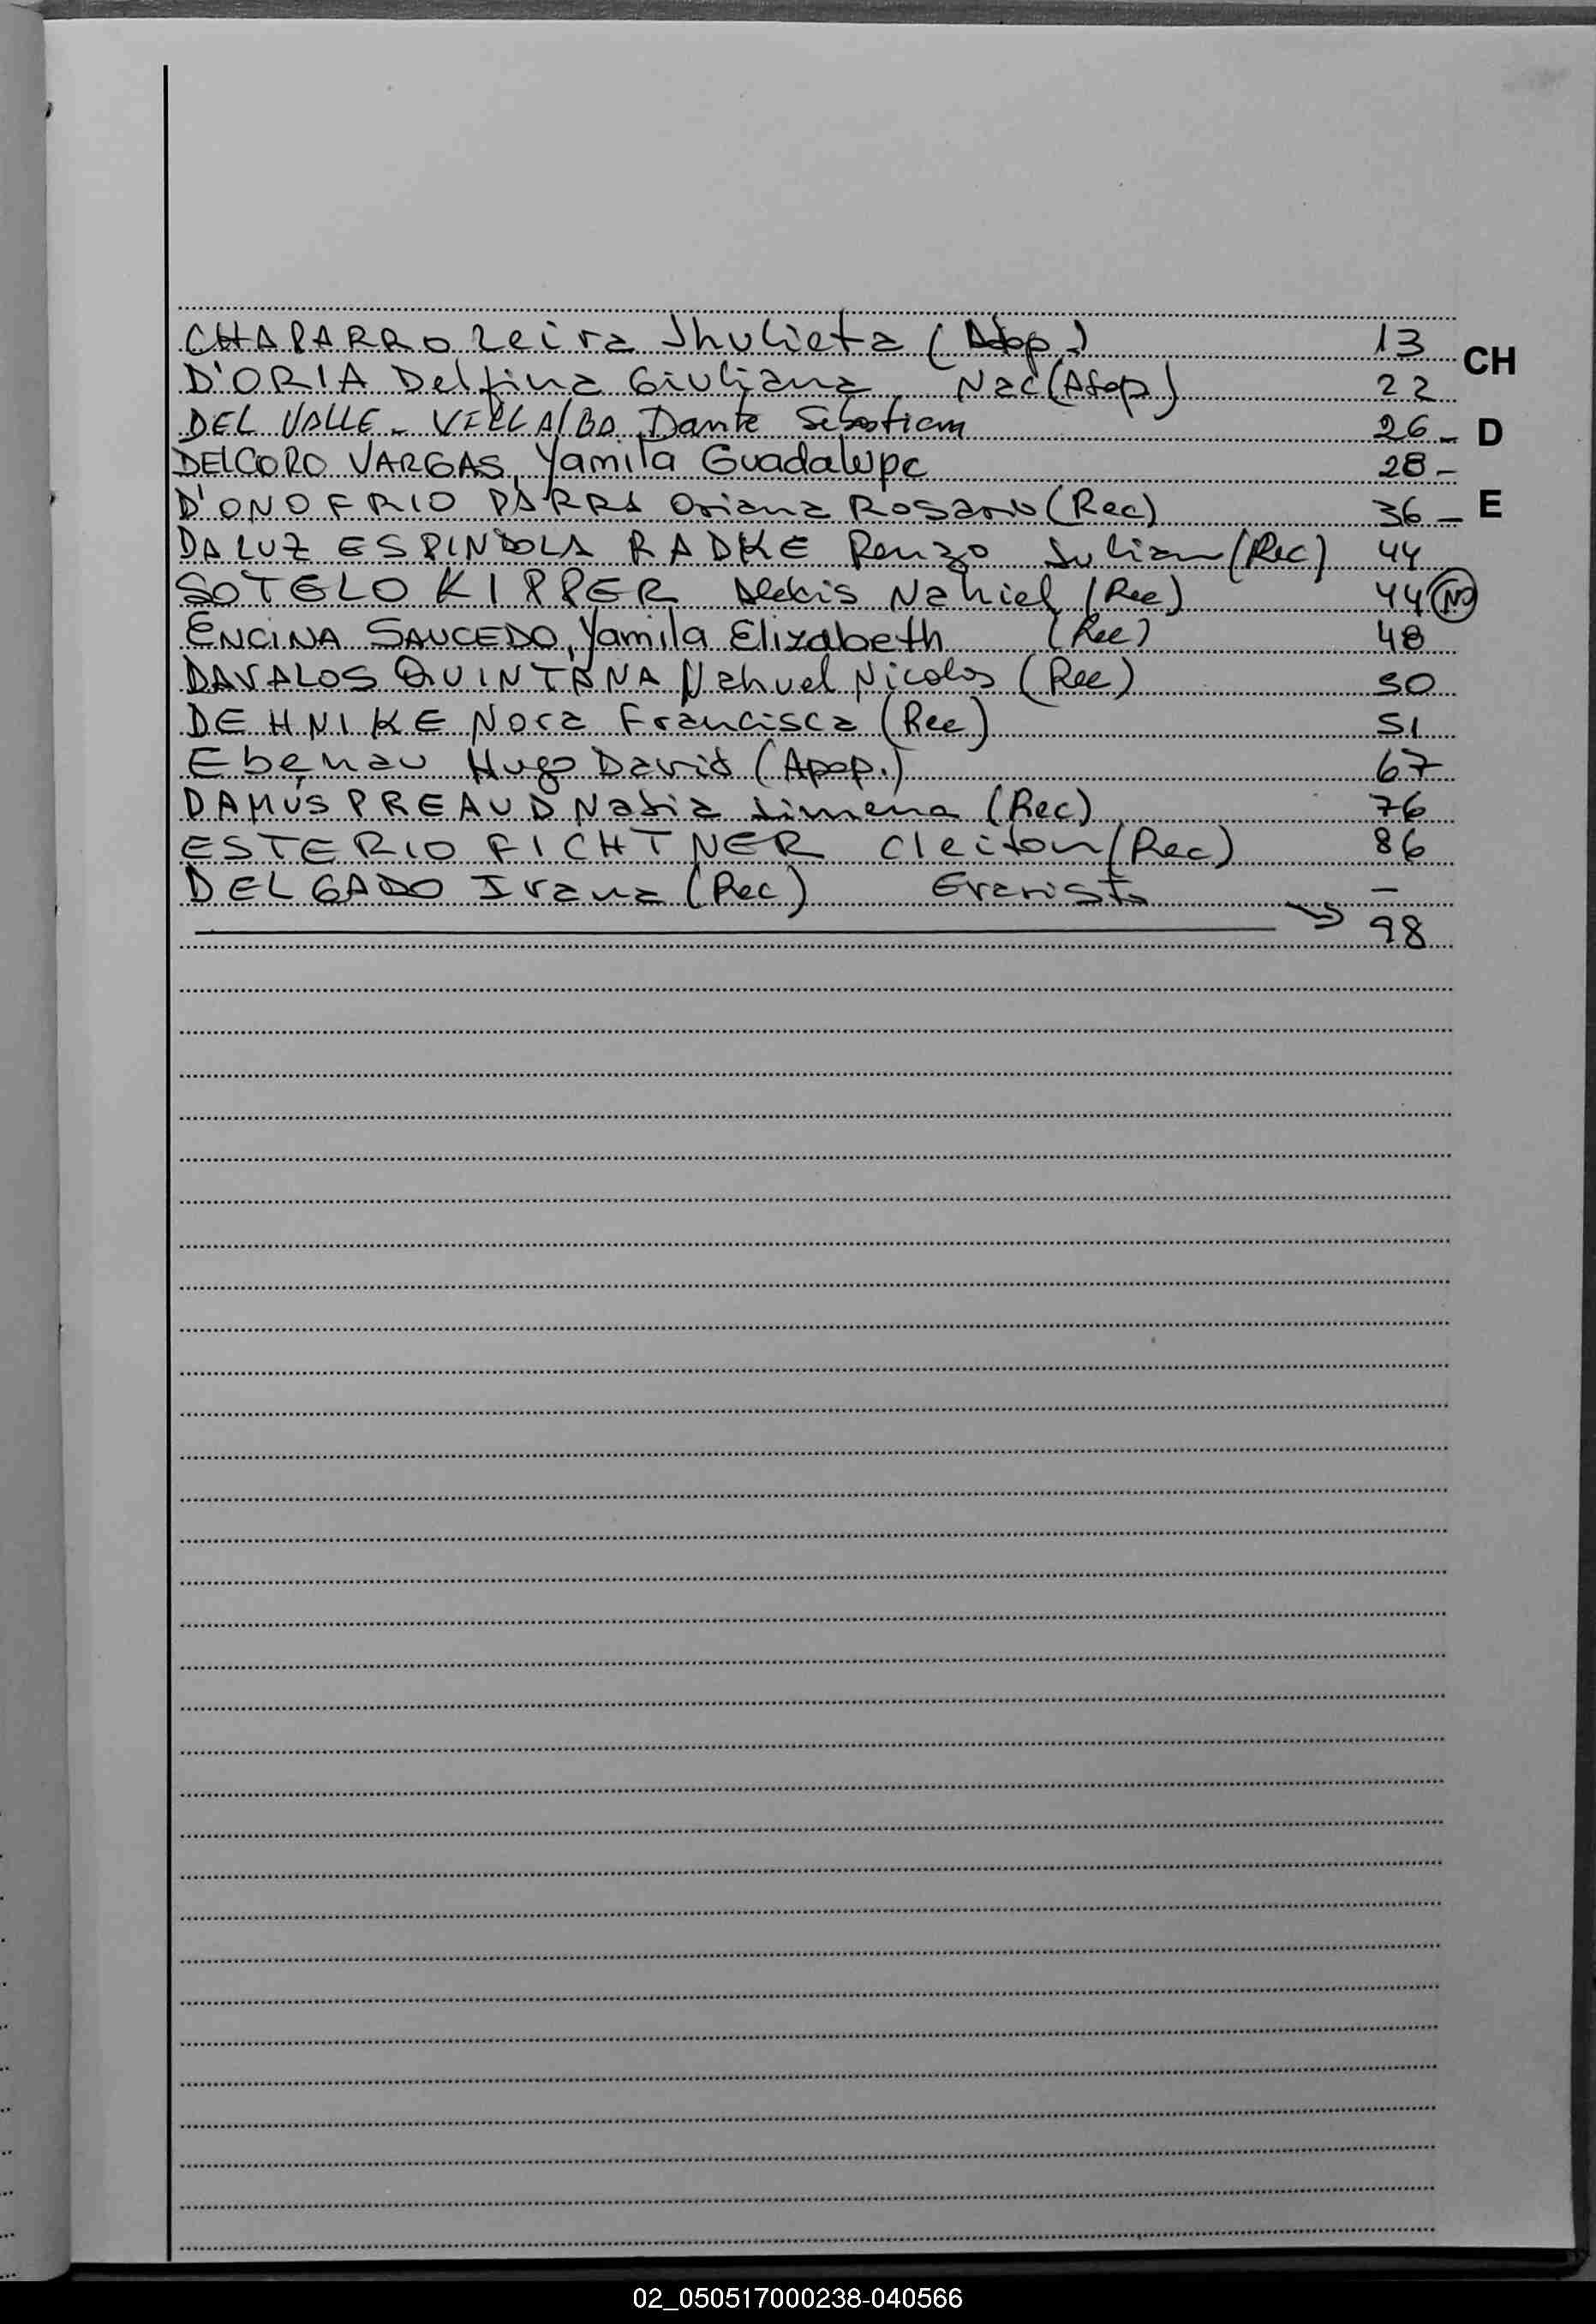 CHAPARRO Zeira Jhulieta (Adop.) 13 CH
D'ORIA Delfina Giuliana Nac (Adop) 22
DEL VALLE - VILLALBA Dante Sebastian 26 - D
DELCORO VARGAS, Yamila Guadalupe 28 -
D'ONOFRIO PARRA Oriana Rosario (Rec) 36 - E
DA LUZ ESPINDOLA RADKE Renzo Julian (Rec) 44
SOTELO KIPPER Alekis Nahiel (Rec) 44 NO
ENCINA SAUCEDO, Yamila Elizabeth (Rec) 48
DAVALOS QUINTANA Nahuel Nicolas (Rec) 50
DEHNIKE Nora Francisca (Rec) 51
Ebenau Hugo David (Apop.) 67
DAMUS PREAUD Nadia Jimena (Rec) 76
ESTERIO FICHTNER Cleiton (Rec) 86
DELGADO Ivana (Rec) Evaristo -
98
02_050517000238-040566